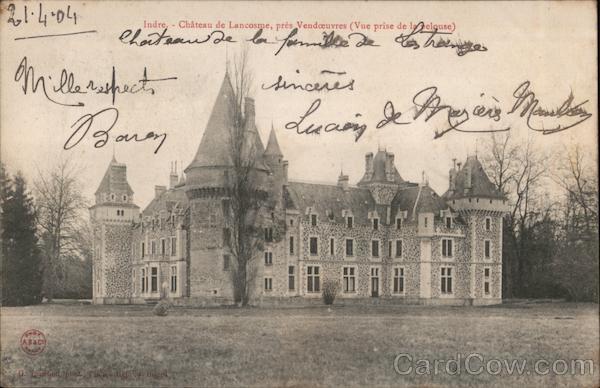 21.4.04
Indre. - Château de Lancosme, près Vendœuvres (Vue prise de la Pelouse)
Château de la famille de Lestrange
Mille respects sincères
Baron Lucien de
A B & C
CardCow.com